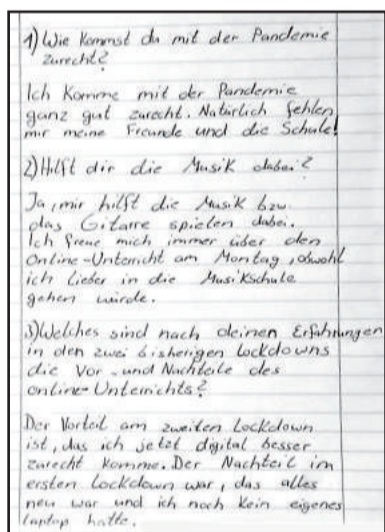 1) Wie kommst du mit der Pandemie
zurecht?
Ich komme mit der Pandemie
ganz gut zurecht. Natürlich fehlen
mir meine Freunde und die Schule!
2) Hilft dir die Musik dabei?
Ja, mir hilft die Musik bzw.
das Gitarre spielen dabei.
Ich freue mich immer über den
Online-Unterricht am Montag, obwohl
ich lieber in die Musikschule
gehen würde.
3) Welches sind nach deinen Erfahrungen
in den zwei bisherigen Lockdowns
die Vor- und Nachteile des
online-Unterrichts?
Der Vorteil am zweiten Lockdown
ist, das ich jetzt digital besser
zurecht komme. Der Nachteil im
ersten Lockdown war, das alles
neu war und ich noch kein eigenes
Laptop hatte.